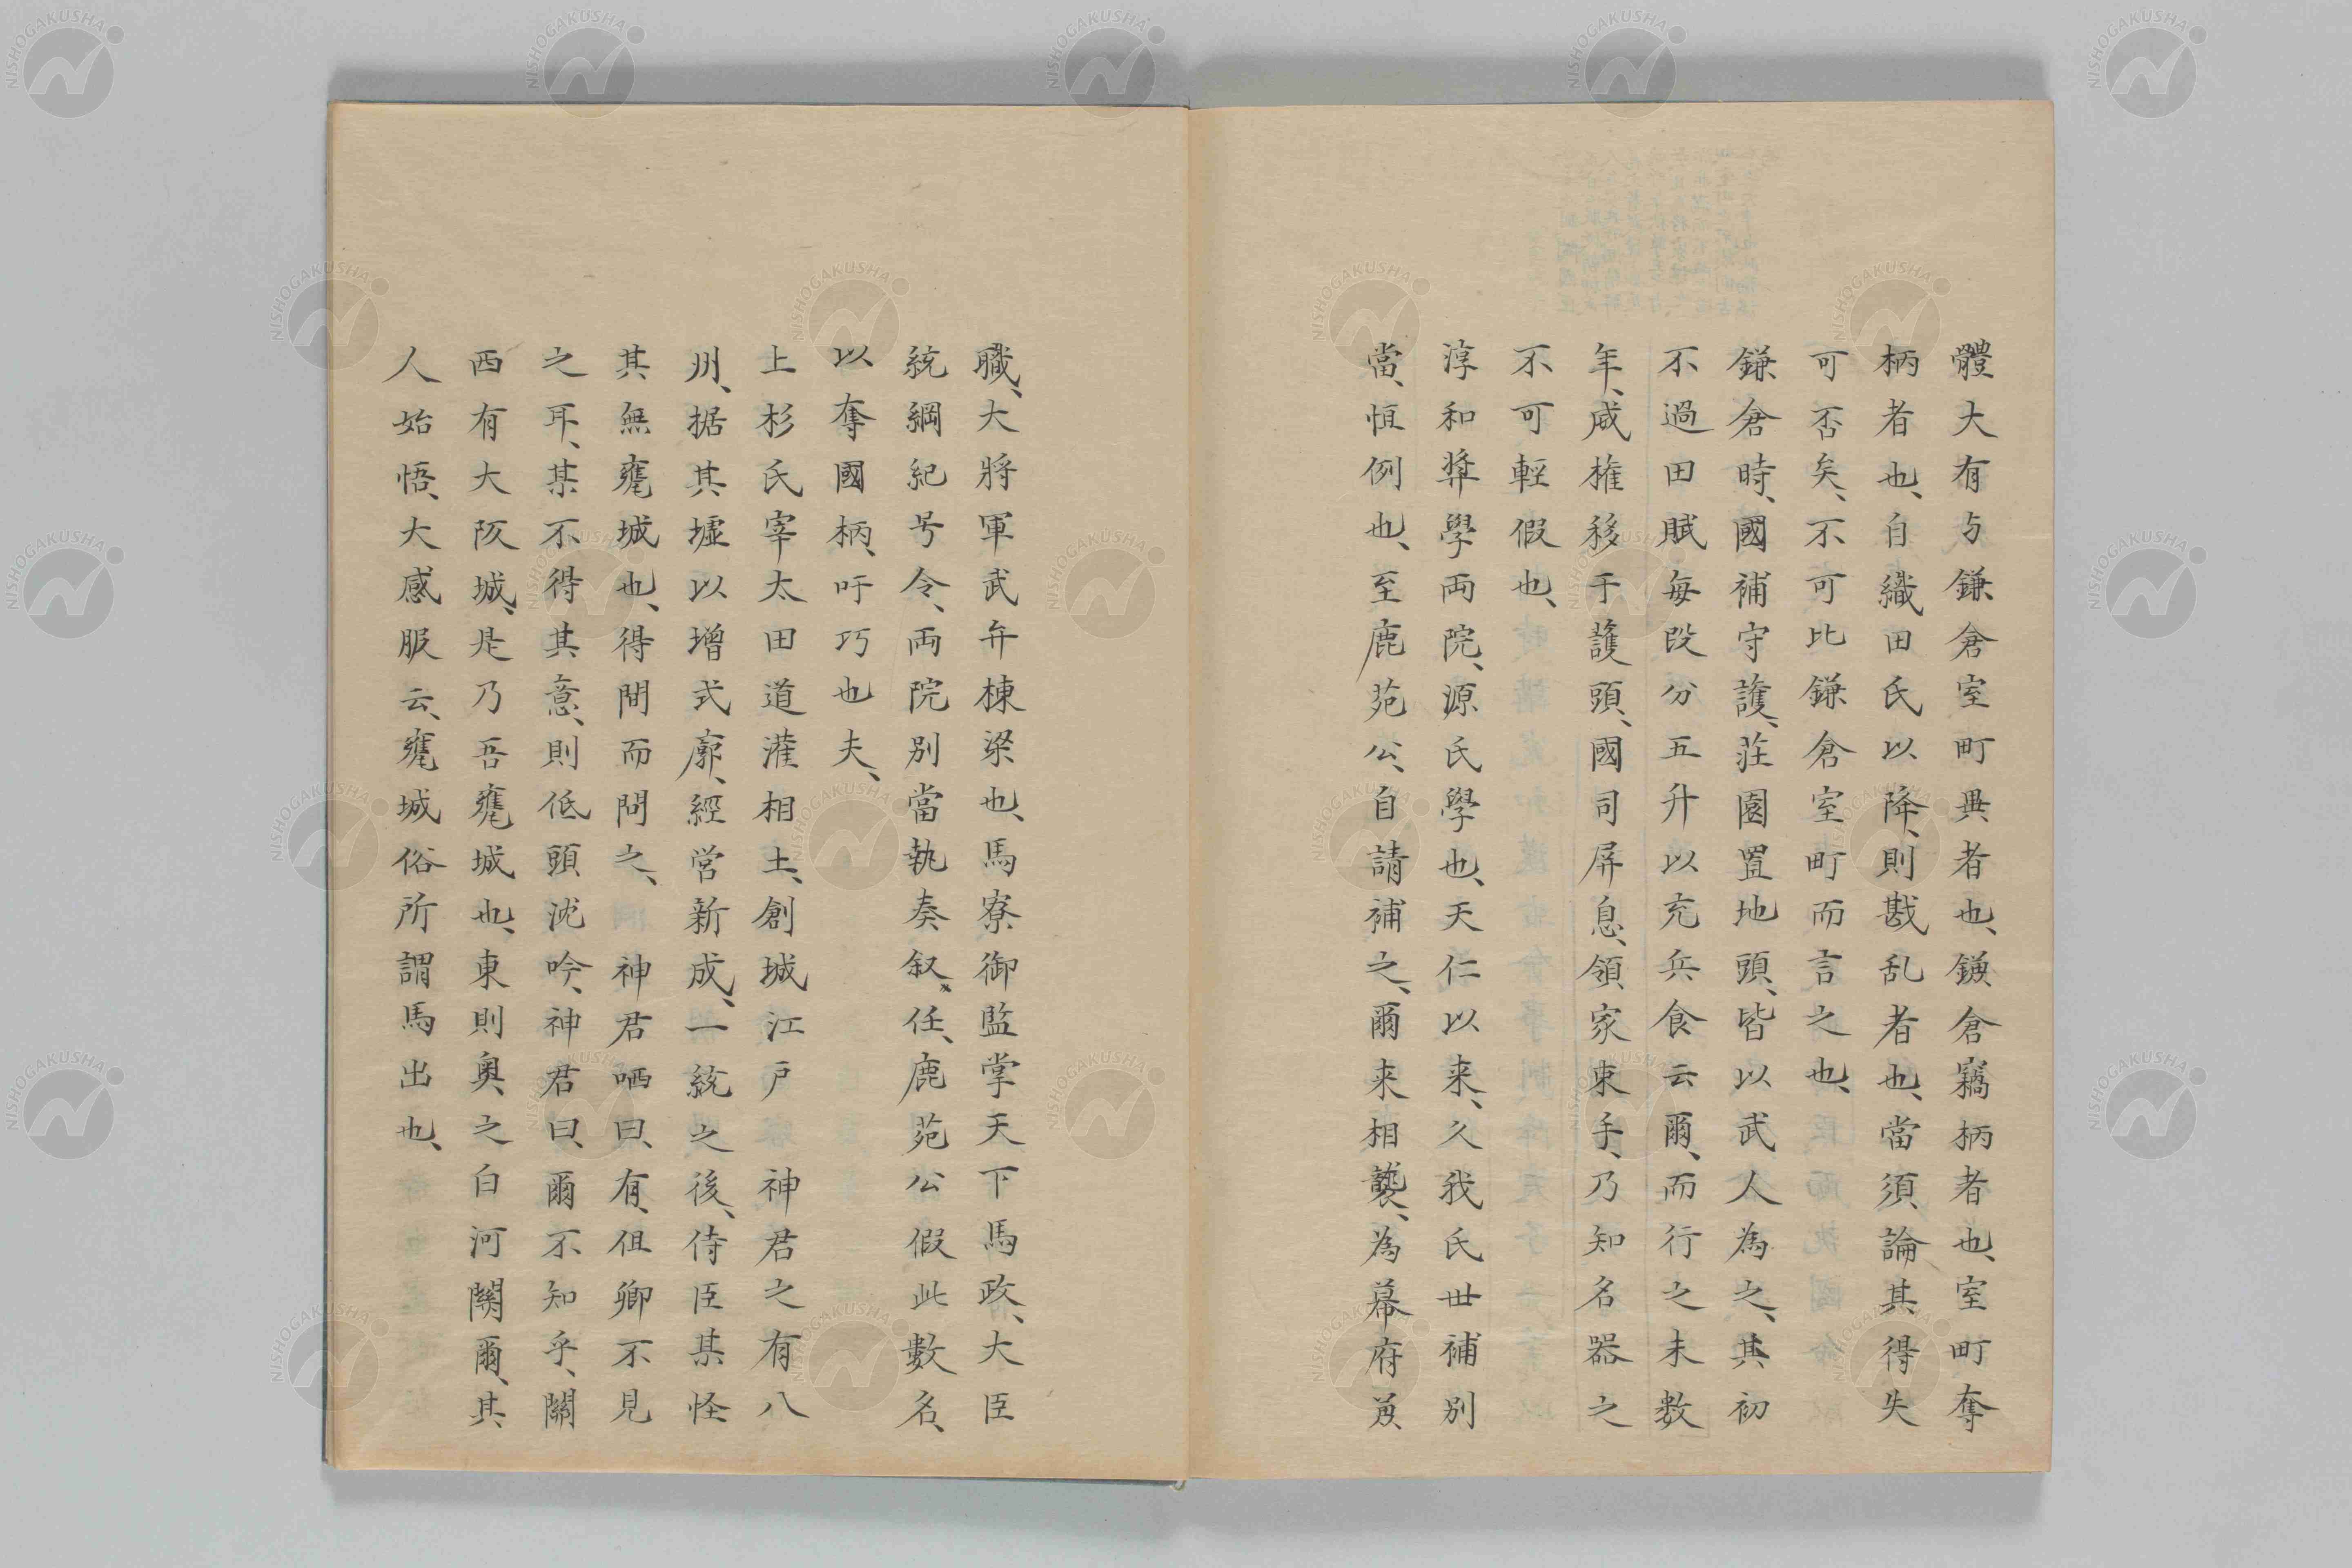 體大有与鎌倉室町異者也、鎌倉竊柄者也、室町奪
柄者也、自織田氏以降、則戡乱者也、當須論其得失
可否矣、不可比鎌倉室町而言之也、
鎌倉時、國補守護、荘園置地頭、皆以武人為之、其初
不過田賦每段分五升以充兵食云爾、而行之未数
年、威権移于護頭、國司屏息、領家束手、乃知名器之
不可輕假也、
淳和奨學両院、源氏學也、天仁以来、久我氏世補別
當、恒例也、至鹿苑公、自請補之、爾来相襲、為幕府兼
職、大將軍武弁棟梁也、馬寮御監掌天下馬政、大臣
統綱紀号令、両院別當執奏叙任、鹿苑公假此數名、
以奪國柄、吁巧也夫、
上杉氏宰太田道灌相土、創城江戸 神君之有八
州、据其墟以增式廓、經営新成、一統之後、侍臣某怪
其無甕城也、得間而問之、 神君哂曰、有、但卿不見
之耳、某不得其意、則低頭沈吟、神君曰、爾不知乎、關
西有大阪城、是乃吾甕城也、東則奥之白河關爾、其
人始悟、大感服云、甕城俗所謂馬出也、
NISHOGAKUSHA